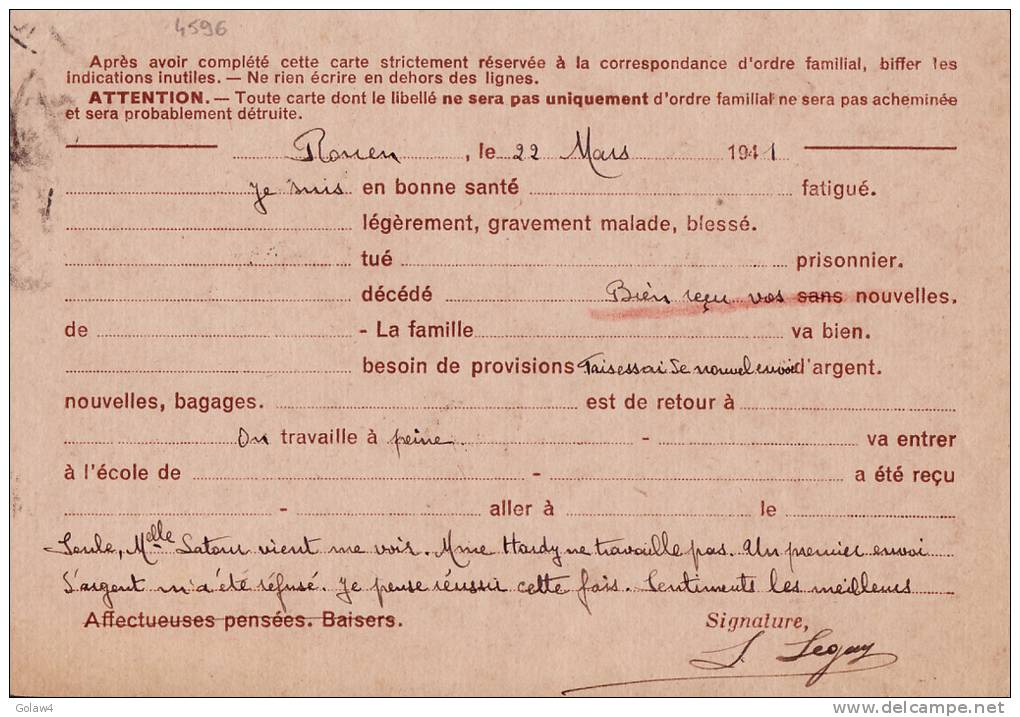 4596
Après avoir complété cette carte strictement réservée à la correspondance d'ordre familial, biffer les
indications inutiles. — Ne rien écrire en dehors des lignes.
ATTENTION. — Toute carte dont le libellé ne sera pas uniquement d'ordre familial ne sera pas acheminée
et sera probablement détruite.
Rouen, le 22 Mars 1941
je suis en bonne santé fatigué.
légèrement, gravement malade, blessé.
tué prisonnier.
décédé Bien reçu vos sans nouvelles.
de - La famille va bien.
besoin de provisions Fais essai de nouvel envoi d'argent.
nouvelles, bagages. est de retour à
On travaille à peine. - va entrer
à l'école de - a été reçu
- aller à le
Seule, Melle Latour vient me voir. Mme Hardy ne travaille pas. Un premier envoi
d'argent m'a été réfusé. Je pense réussir cette fois. Sentiments les meilleurs
Affectueuses pensées. Baisers. Signature,
L. Legay
Golaw4
delcampe.net